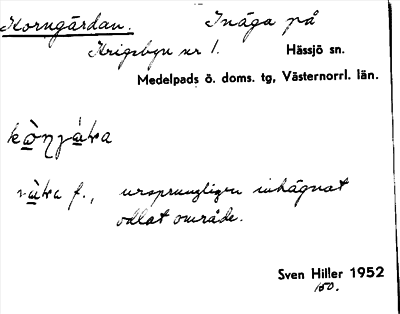 Korngårdan. Inäga på
Krigsbyn nr 1. Hässjö sn.
Medelpads ö. doms. tg, Västernorrl. län.
f., ursprungligen inhägnat
odlat område.
Sven Hiller 1952
150.